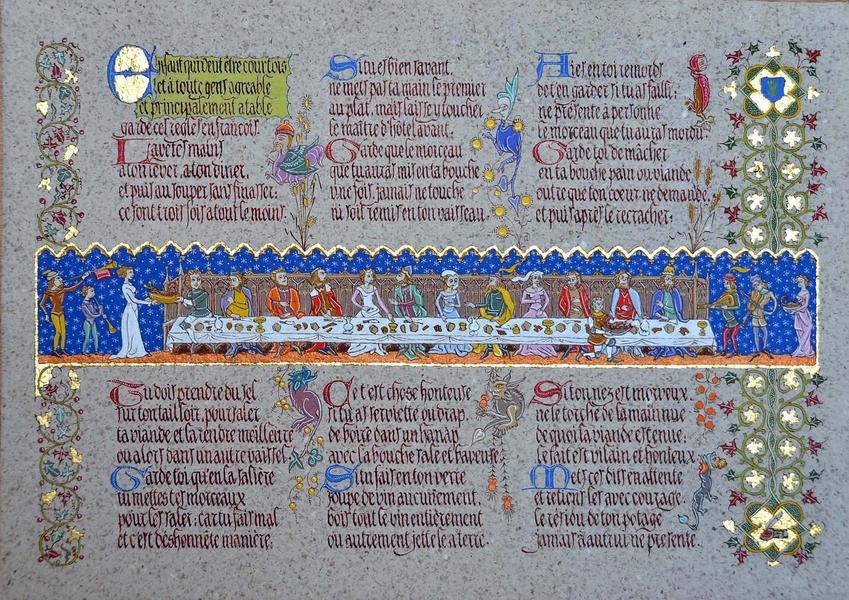 Enfant qui veut être courtois
et à toute gens agreable
et principalement a table
garde ces règles en françois.
Lave tes mains
a ton lever, a ton diner,
et puis au souper sans finasser:
ce sont trois fois a tout le moins.
Si tu es bien savant,
ne mets pas ta main le premier
au plat, mais laisse y toucher
le maître d'hôtel avant.
Garde que le morceau
que tu auras mis en ta bouche
une fois, jamais ne touche
ni soit remis en ton vaisseau.
Aies en toi remords
de t'en garder si tu as failli;
ne présente à personne
le morceau que tu auras mordu.
Garde toi de mâcher
en ta bouche pain ou viande
outre que ton coeur ne demande,
et puis après le recracher.
Tu dois prendre du sel
sur ton tailloir, pour saler
ta viande et la rendre meilleure
ou alors dans un autre vaissel.
Garde toi qu'en la salière
tu mettes tes morceaux
pour les saler: car tu fais mal
et c'est déshonnête manière.
Ce t'est chose honteuse
si tu as serviette ou drap,
de boire dans un hanap
avec la bouche sale et baveuse
Si tu fais en ton verre
soupe de vin aucunement,
bois tout le vin entièrement
ou autrement jette le a terre.
Si ton nez est morveux,
ne le torche de la main nue
de quoi ta viande est tenue.
Le fait est vilain et honteux
Mets ces dits en attente
et retiens les avec courage.
Le résidu de ton potage
jamais à autrui ne presente.